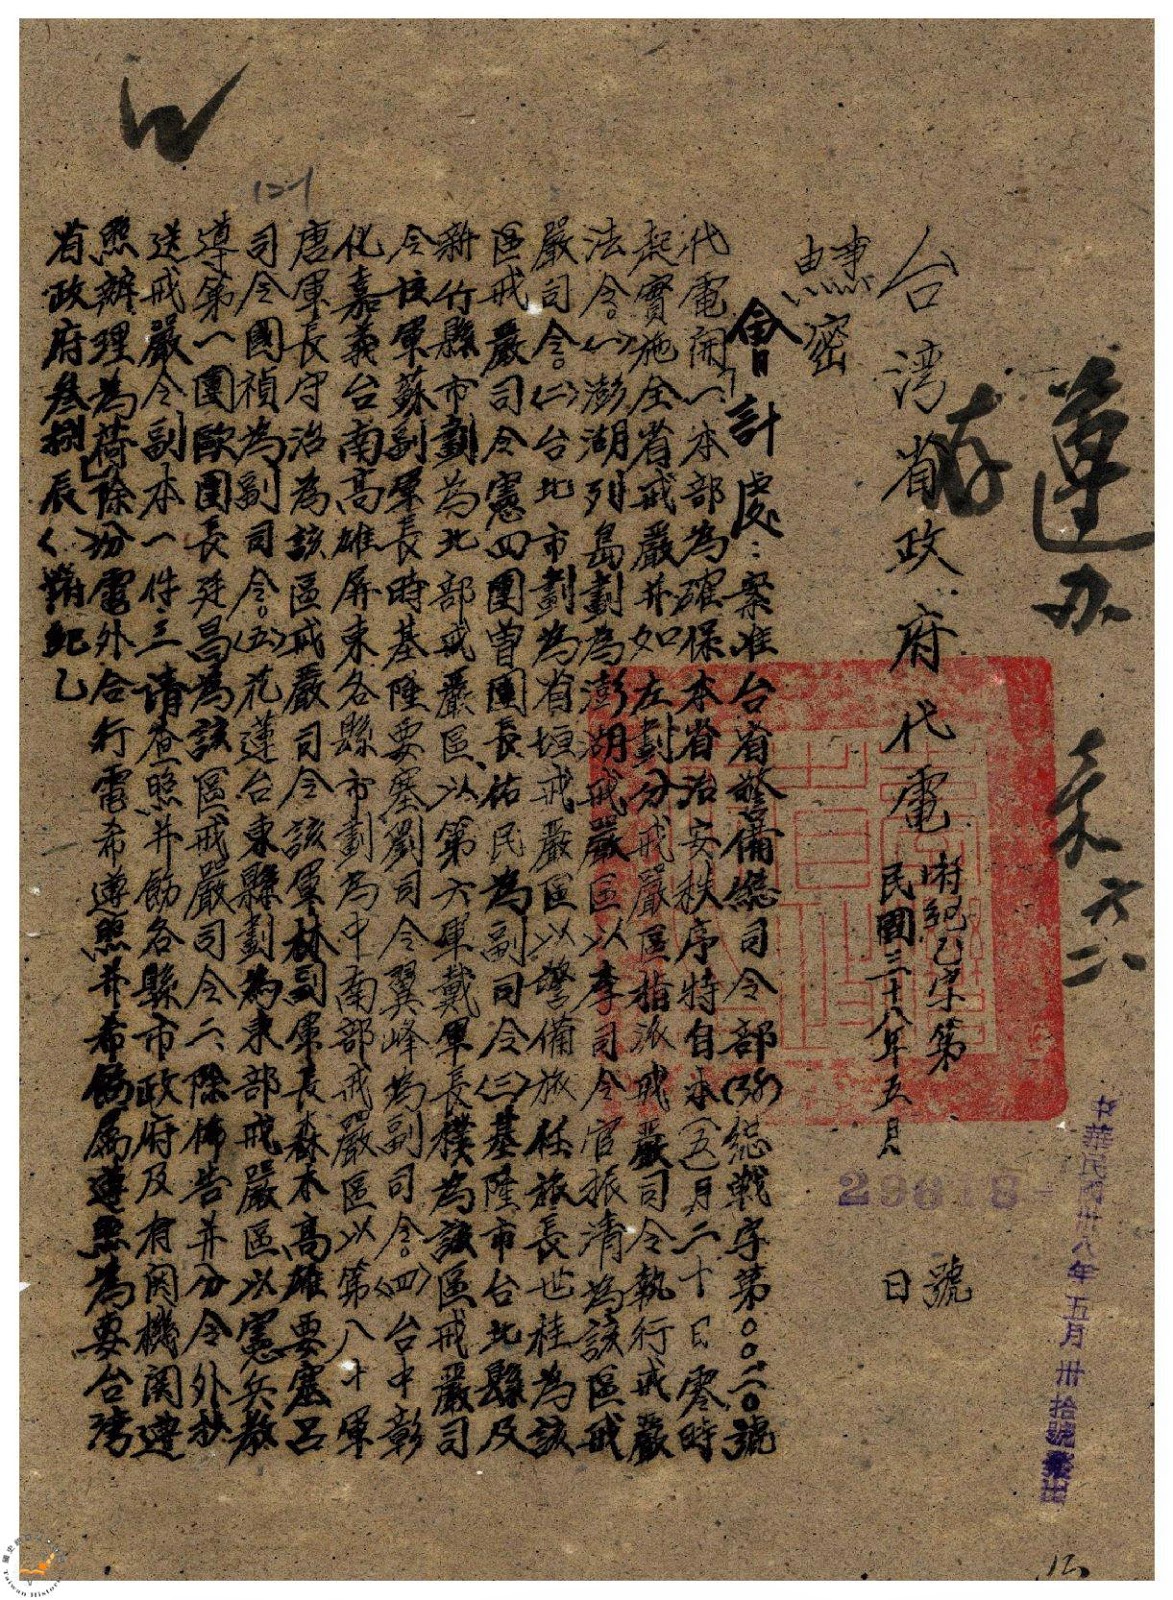 遵办
存
六二
台湾省政府代電
府紀乙字第
號
民國三十八年五月
日
29618
中華民國卅八年五月卅拾號發出
事由
密
會計處:案准台省警備總司令部(38)總戰字第〇〇二〇號
代電開「一、本部為確保本省治安秩序特自本(五)月二十日零時
起實施全省戒嚴并如左劃分戒嚴區指派戒嚴司令執行戒嚴
法令。(一)澎湖列島劃為澎湖戒嚴區以李司令官振清為該區戒
嚴司令。(二)台北市劃為省垣戒嚴區以警備旅任旅長世桂為該
區戒嚴司令憲四團曾團長佑民為副司令(三)基隆市台北縣及
新竹縣市劃為北部戒嚴區、以第六軍戴軍長樸為該區戒嚴司
令該軍蘇副軍長時基隆要塞劉司令翼峰為副司令。(四)台中彰
化嘉義台南高雄屏東各縣市劃為中南部戒嚴區以第八十軍
唐軍長守治為該區戒嚴司令該軍林副軍長森木高雄要塞呂
司令國禎為副司令。(五)花蓮台東縣劃為東部戒嚴區以憲兵教
導第一團歐團長廷昌為該區戒嚴司令二、除佈告并分令外茲
送戒嚴令副本一件三、請查照并飭各縣市政府及有関機関遵
照辦理為荷」除分電外合行電希遵照并希飭屬遵照為要台灣
省政府叁捌辰()府紀乙
12